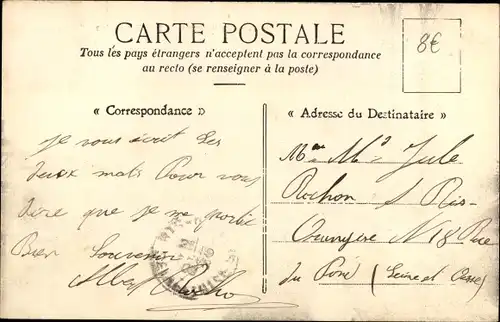 CARTE POSTALE
Tous les pays étrangers n'acceptent pas la correspondance
au recto (se renseigner à la poste)
8€
« Correspondance »
Je vous écrit ses
deux mots Pour vous
dire que je me porte
Bien Souvenir
« Adresse du Destinataire »
Jule
Rochon
N 18 Rue
du Pont (Seine et Oise)